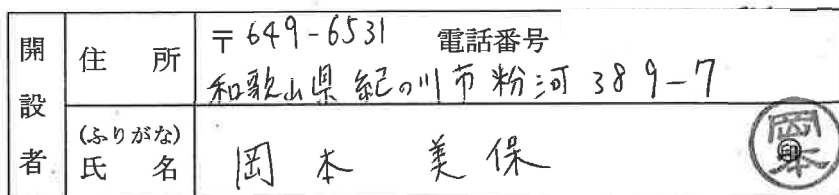 開設者
住所
〒649-6531 電話番号
和歌山県紀の川市粉河389-7
(ふりがな)
氏名
岡本 美保
岡本
印